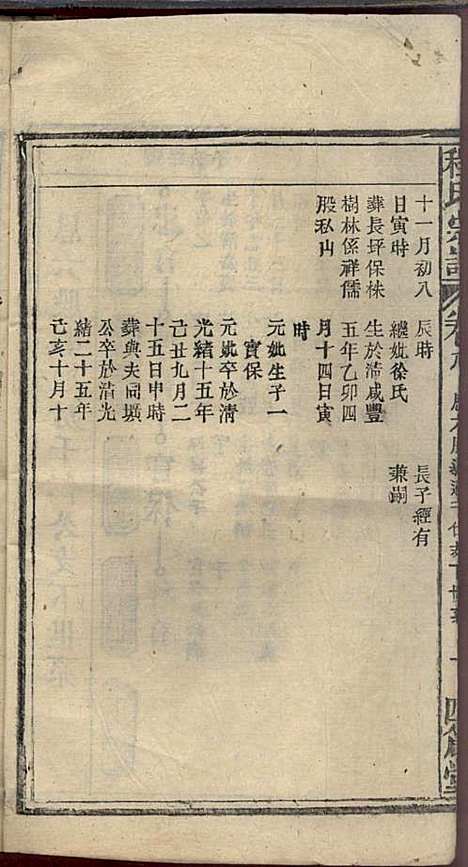 程氏宗譜
十一月初八
日寅時
葬長坪保株
樹林係祥儒
股私山
辰時
繼妣徐氏
生於清咸豐
五年乙卯四
月十四日寅
時
元妣生子一
寶保
元妣卒於清
光緒十五年
己丑九月二
十五日申時
葬與夫同塋
公卒於清光
緒二十五年
己亥十月十
長子經有
兼嗣